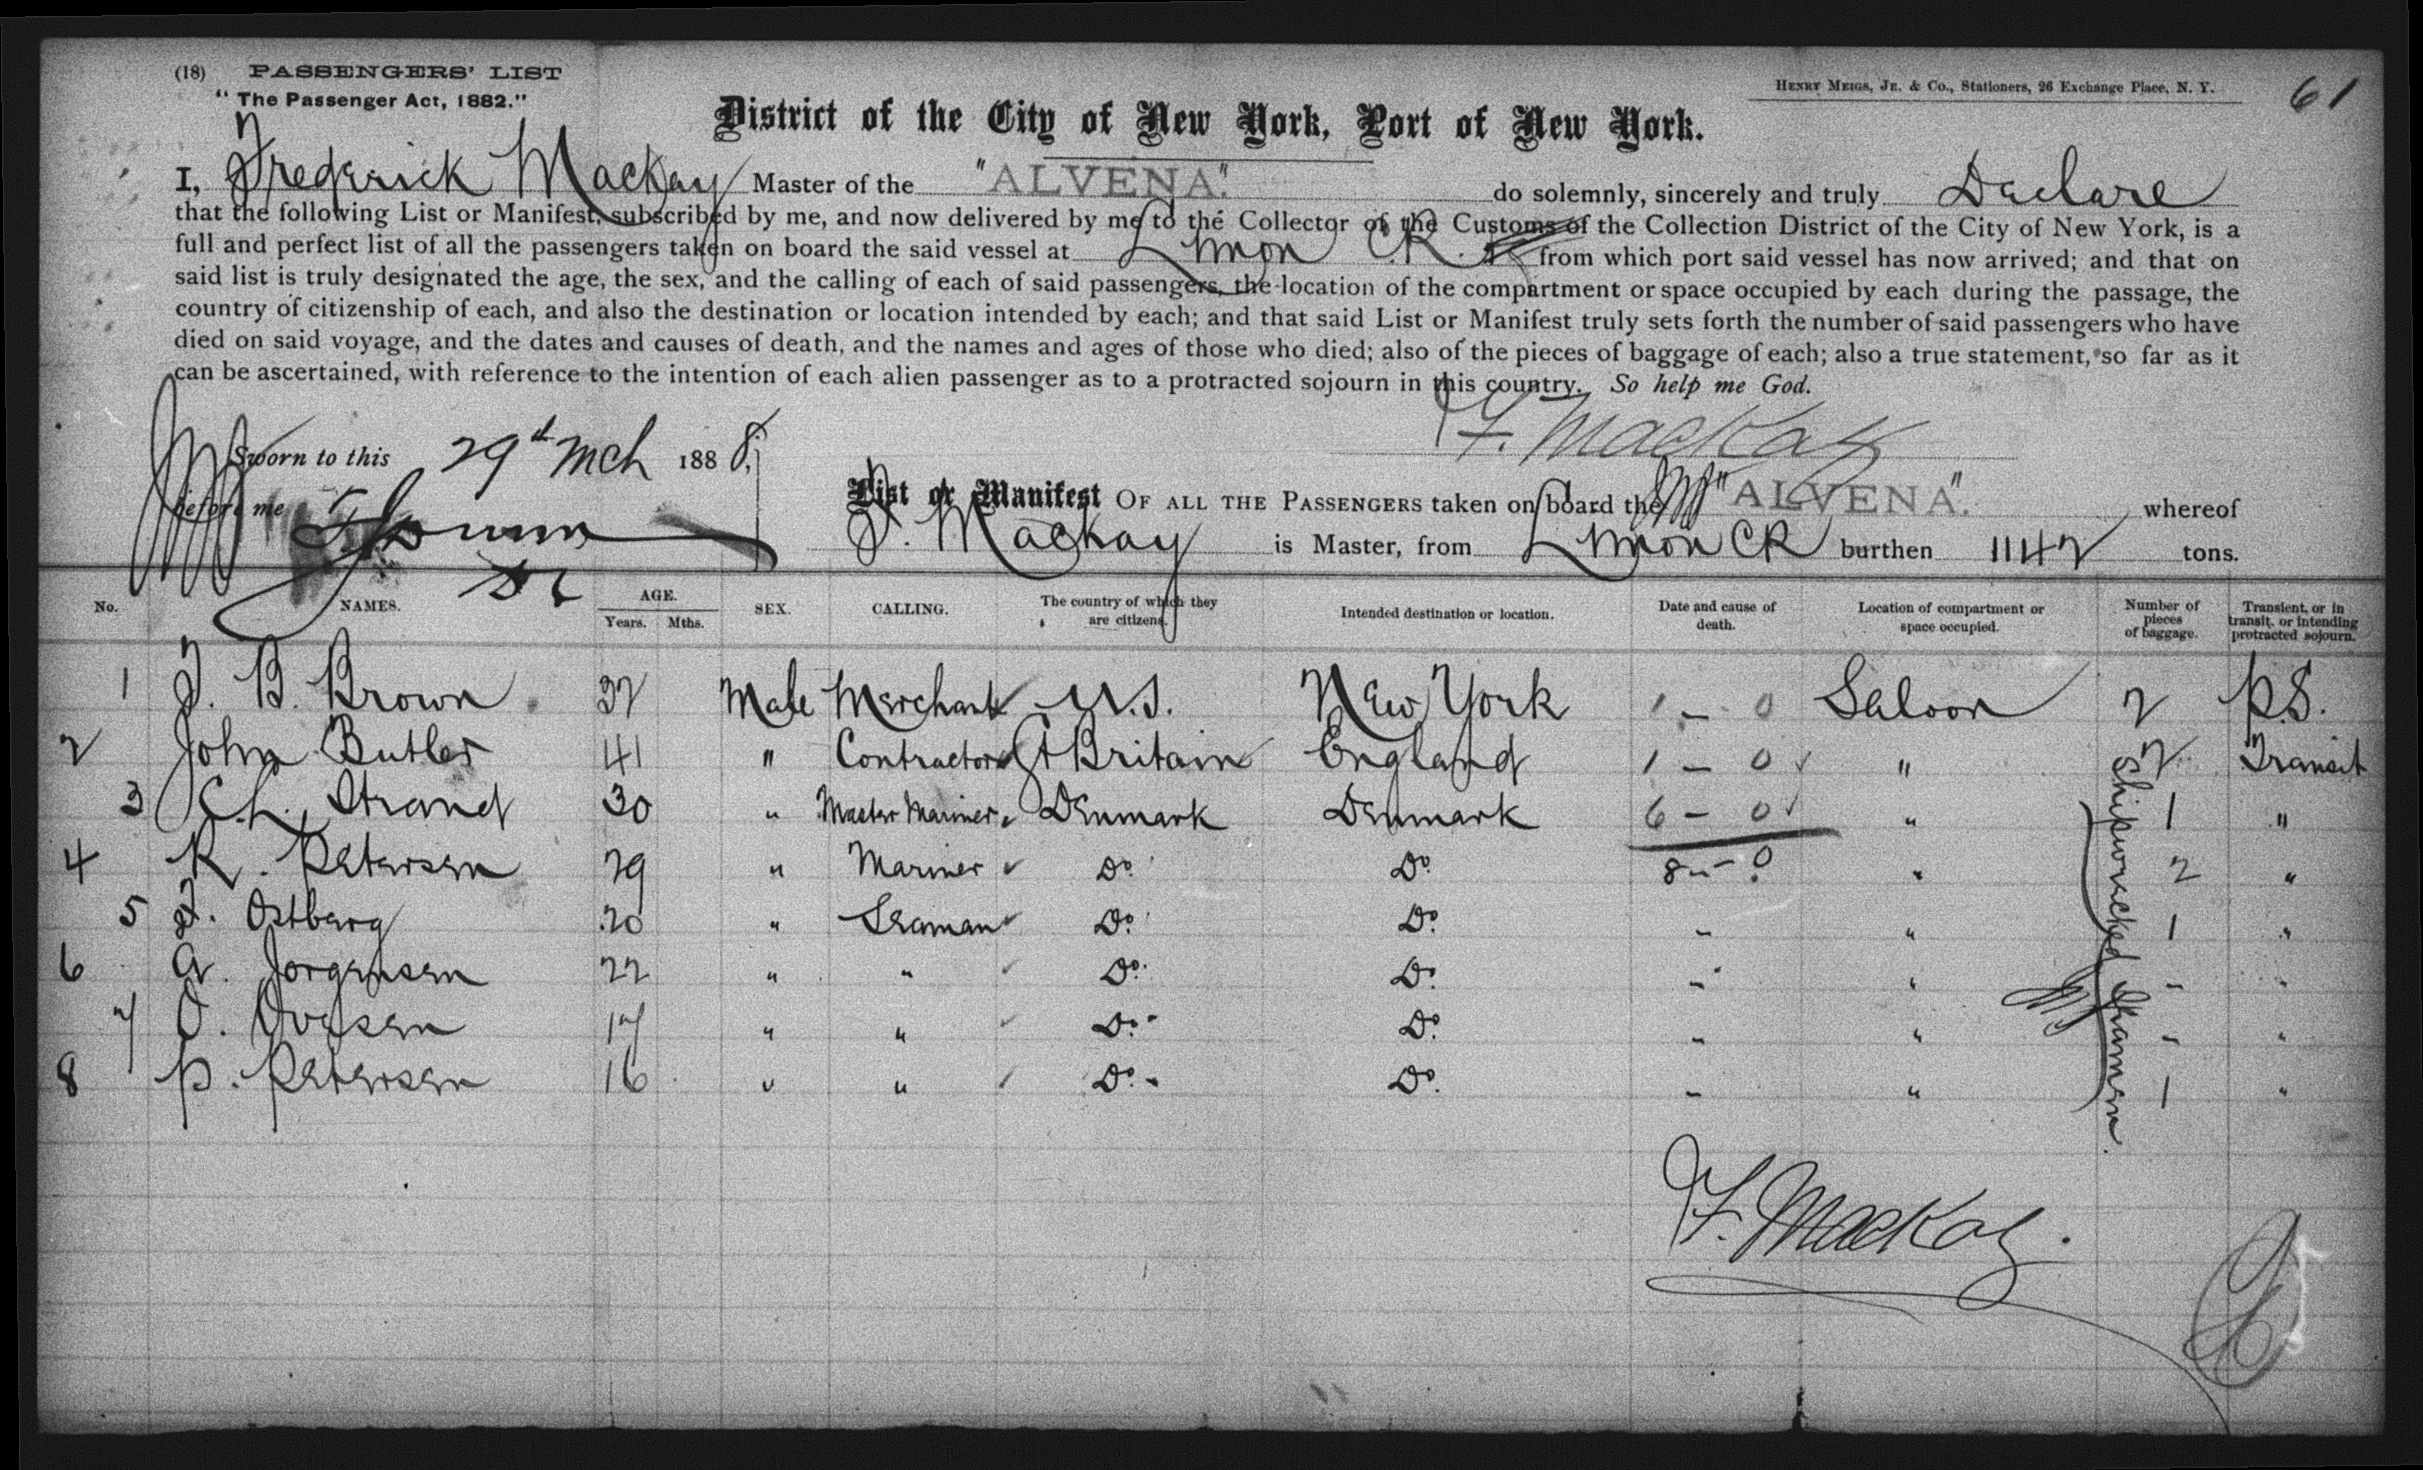 (18) PASSENGERS' LIST
"The Passenger Act, 1882."
HENRY MEIGS, JR. & CO., Stationers, 26 Exchange Place, N. Y.
61
District of the City of New York, Port of New York.
I, Frederick Mackay Master of the "ALVENA". do solemnly, sincerely and truly Declare
that the following List or Manifest, subscribed by me, and now delivered by me to the Collector of the Customs of the Collection District of the City of New York, is a
full and perfect list of all the passengers taken on board the said vessel at Limon C.R. from which port said vessel has now arrived; and that on
said list is truly designated the age, the sex, and the calling of each of said passengers, the location of the compartment or space occupied by each during the passage, the
country of citizenship of each, and also the destination or location intended by each; and that said List or Manifest truly sets forth the number of said passengers who have
died on said voyage, and the dates and causes of death, and the names and ages of those who died; also of the pieces of baggage of each; also a true statement, so far as it
can be ascertained, with reference to the intention of each alien passenger as to a protracted sojourn in this country. So help me God.
F. Mackay
Sworn to this 29th Mch 1888,
before me
List or Manifest OF ALL THE PASSENGERS taken on board the "ALVENA". whereof
F. Mackay is Master, from Limon CR burthen 1142 tons.
No. NAMES. AGE. Years. Mths. SEX. CALLING. The country of which they are citizens. Intended destination or location. Date and cause of death. Location of compartment or space occupied. Number of pieces of baggage. Transient, or in transit, or intending protracted sojourn.
1 J. B. Brown 32 Male Merchant U.S. New York 1 - 0 Saloon 2 P.S.
2 John Butler 41 " Contractor Gt Britain England 1 - 0 " 2 Transit
3 Ch. Strand 30 " Master Mariner Denmark Denmark 6 - 0 " 1 "
4 R. Petersen 29 " Mariner Do. Do. 8 - 0 " 2 "
5 F. Ostberg 20 " Seaman Do. Do. " " 1 "
6 A. Jorgensen 22 " " Do. Do. " " - "
7 O. Ovesen 17 " " Do. Do. " " - "
8 P. Petersen 16 " " Do. Do. " " 1 "
Shipwrecked Seamen.
F. Mackay.